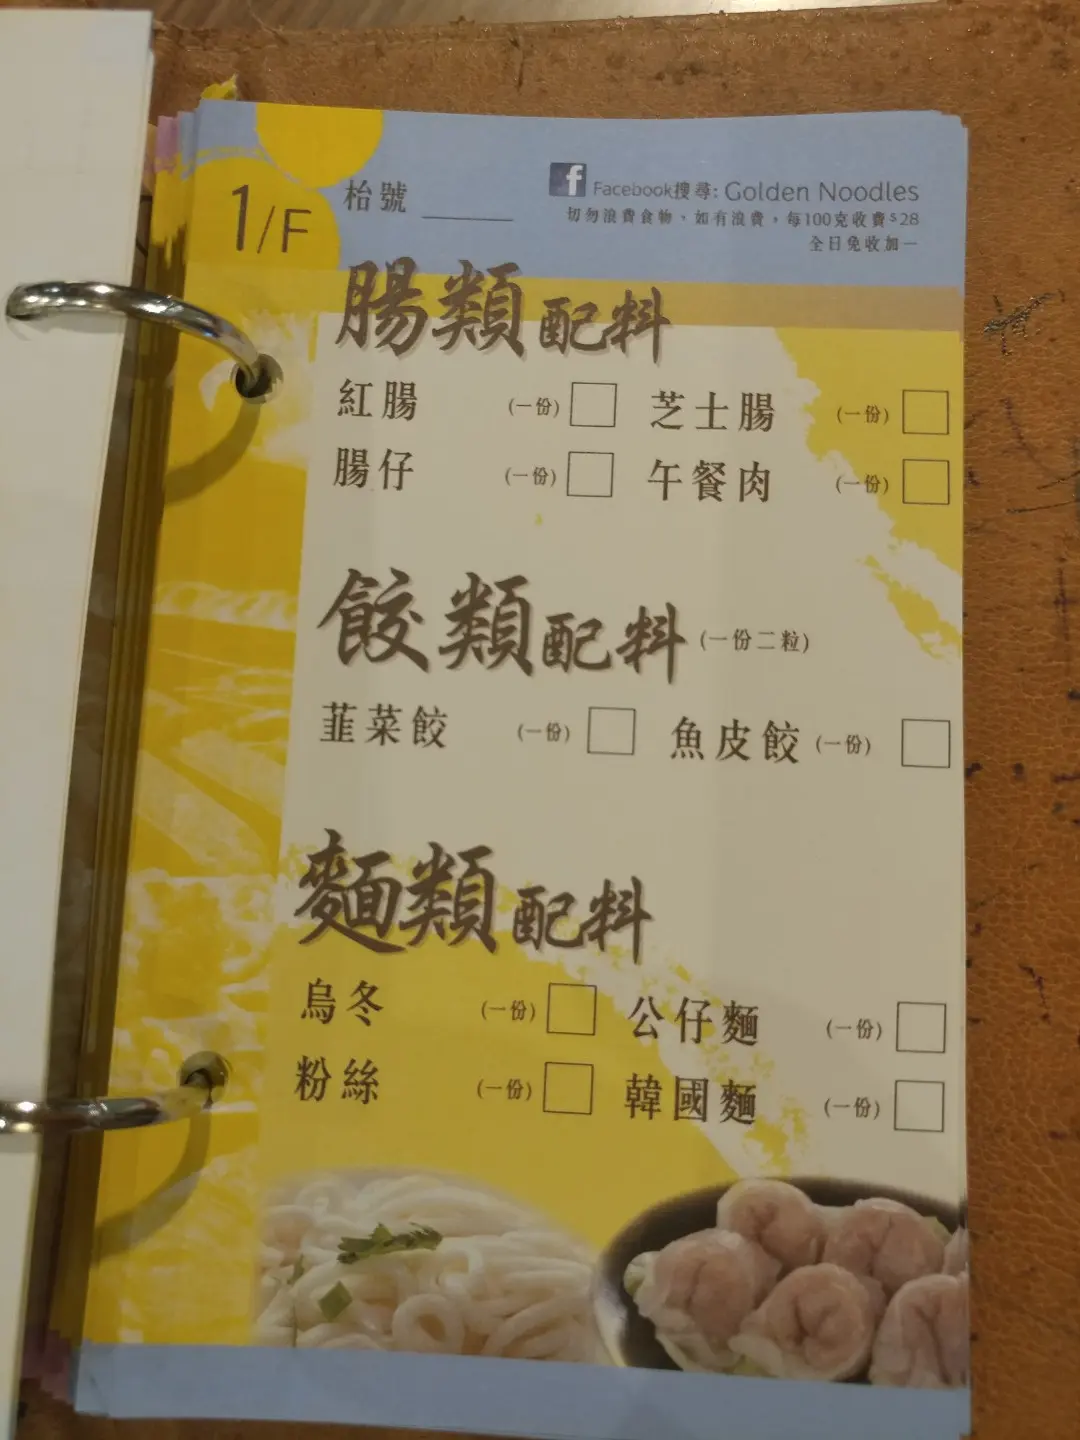 1/F
枱號
Facebook搜尋: Golden Noodles
切勿浪費食物，如有浪費，每100克收費$28
全日免收加一
腸類配料
紅腸 (一份) 芝士腸 (一份)
腸仔 (一份) 午餐肉 (一份)
餃類配料 (一份二粒)
韮菜餃 (一份) 魚皮餃 (一份)
麵類配料
烏冬 (一份) 公仔麵 (一份)
粉絲 (一份) 韓國麵 (一份)